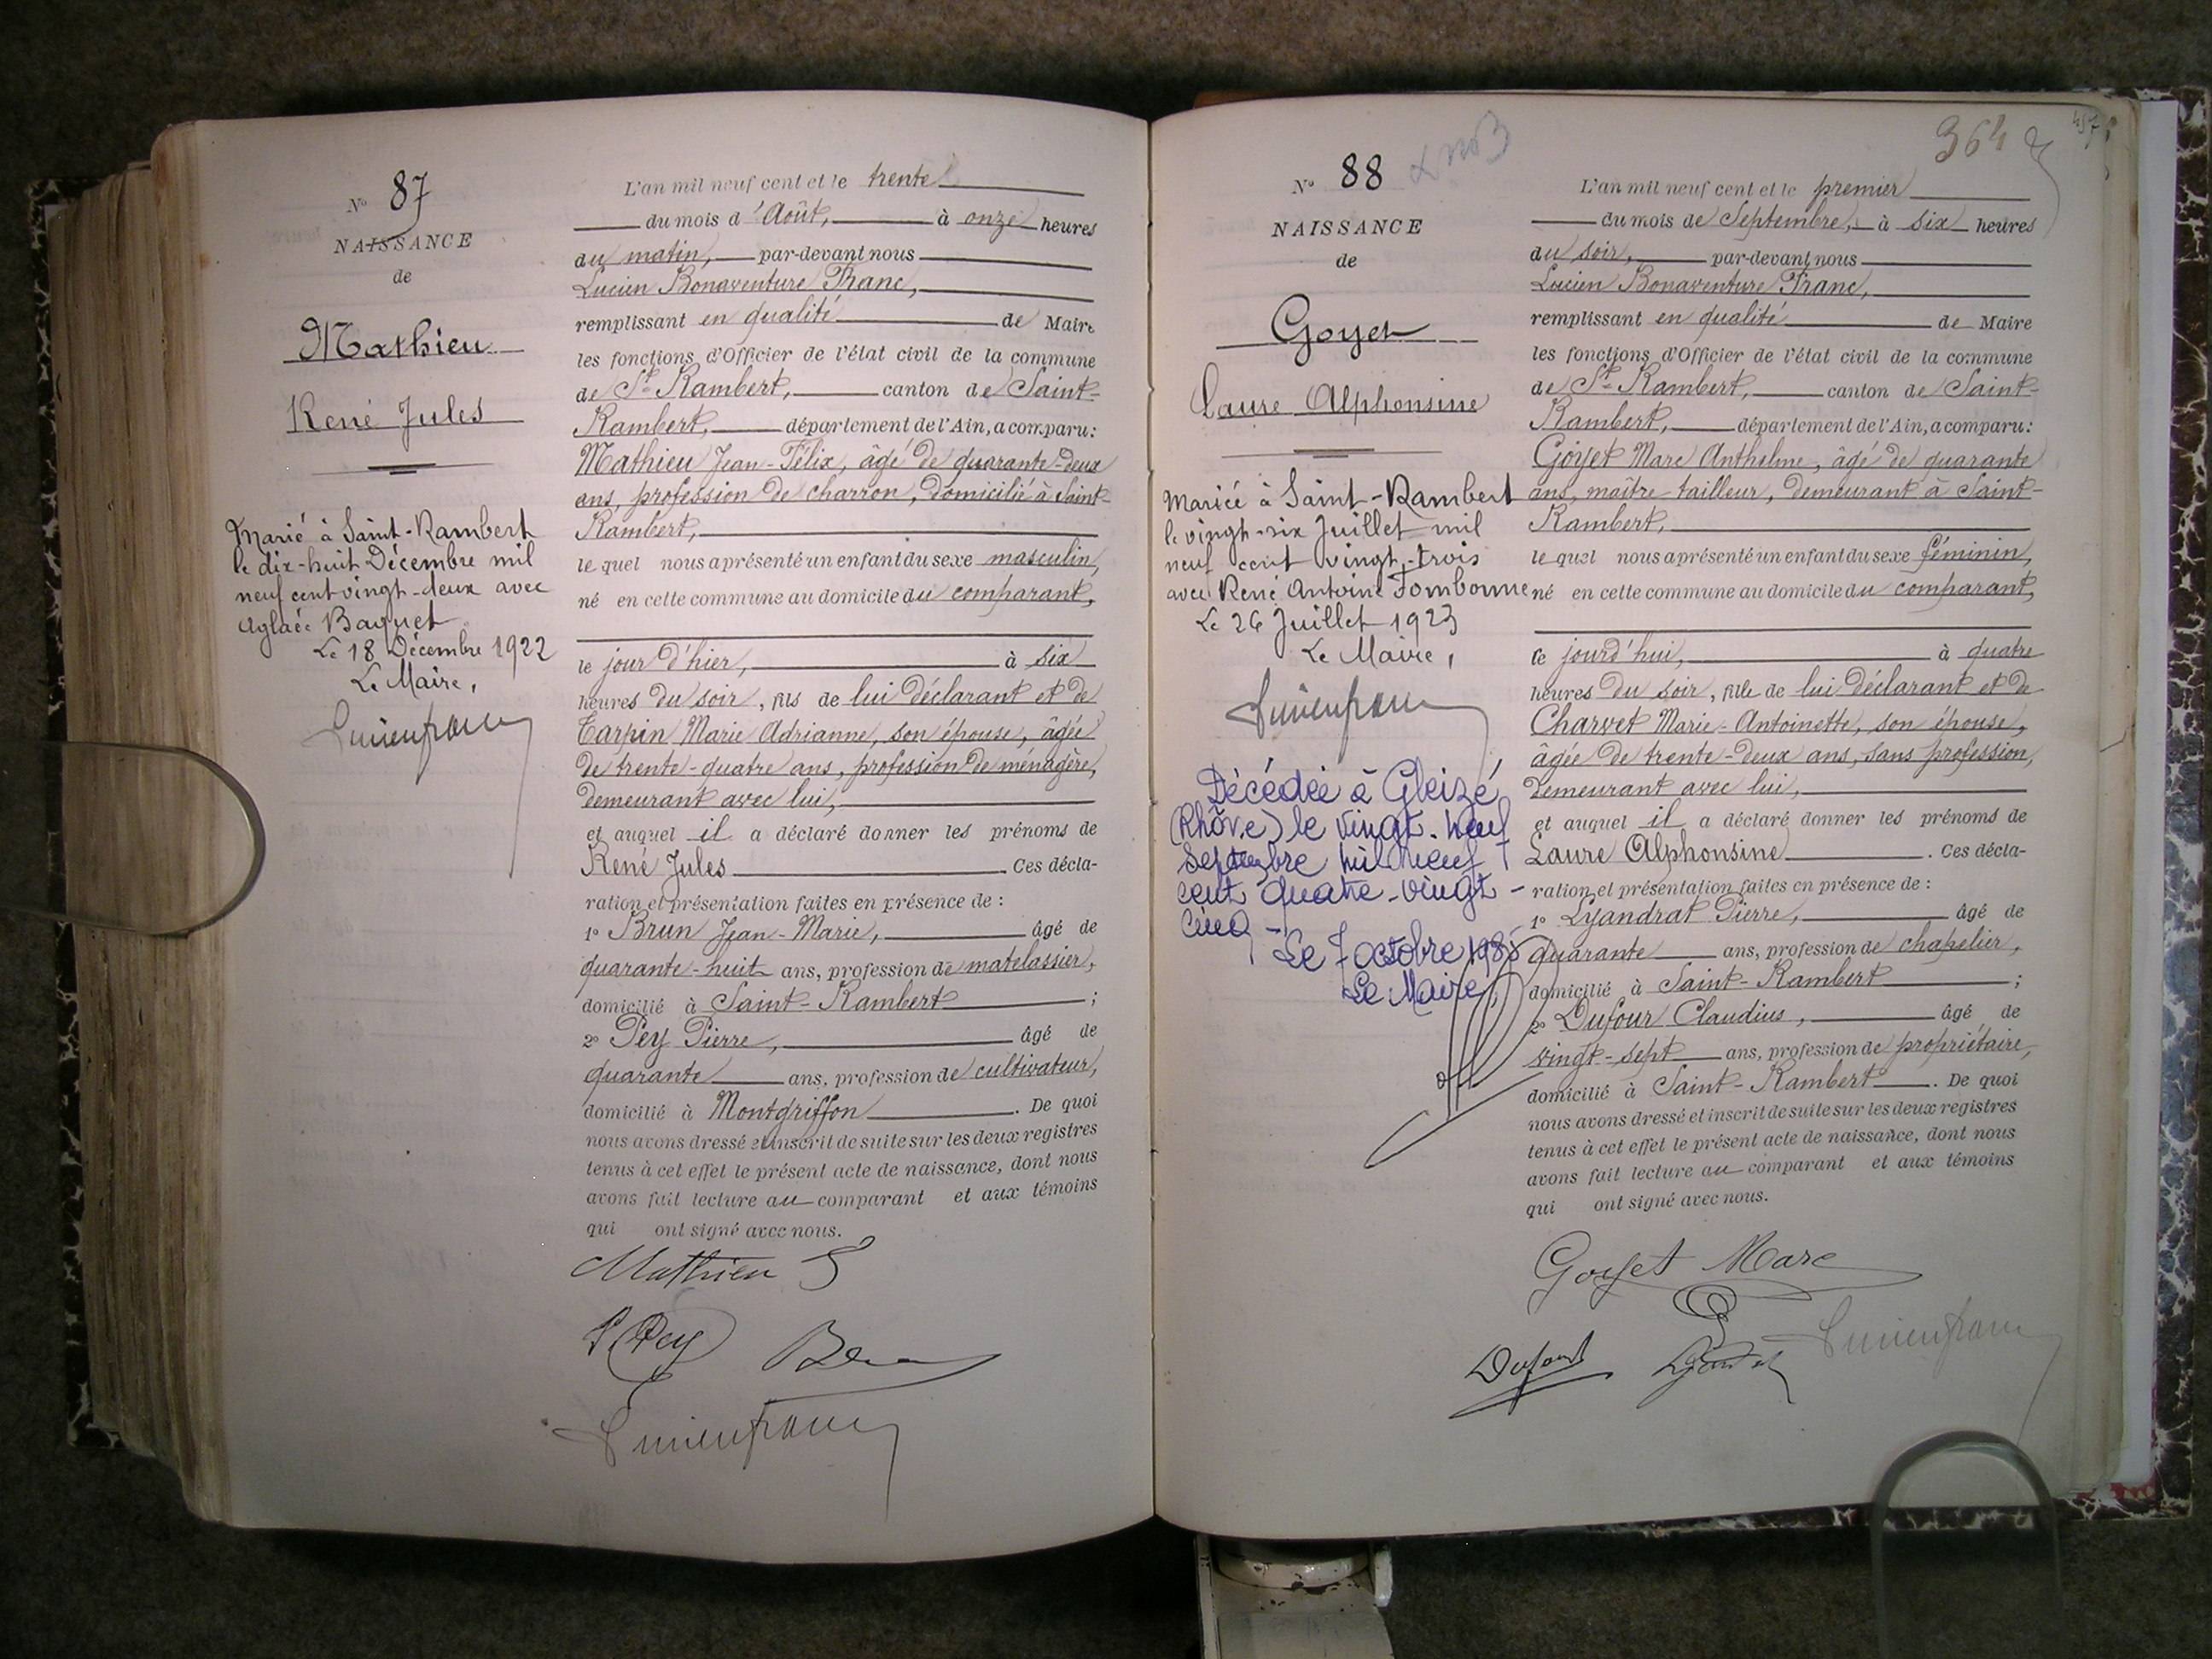 N° 87
NAISSANCE
de
Mathieu
René Jules
Marié à Saint-Rambert
le dix-huit Décembre mil
neuf cent vingt-deux avec
Aglaée Baquet
Le 18 Décembre 1922
Le Maire,
Lucien franc
L'an mil neuf cent et le trente
du mois d'Août, à onze heures
du matin, par-devant nous
Lucien Bonaventure Franc,
remplissant en qualité de Maire
les fonctions d'Officier de l'état civil de la commune
de St Rambert, canton de Saint-
Rambert, département de l'Ain, a comparu:
Mathieu Jean-Félix, âgé de quarante-deux
ans, profession de charron, domicilié à Saint-
Rambert,
le quel nous a présenté un enfant du sexe masculin,
né en cette commune au domicile du comparant,
le jour d'hier, à six
heures du soir, fils de lui déclarant et de
Tarpin Marie Adrianne, son épouse, âgée
de trente-quatre ans, profession de ménagère,
demeurant avec lui,
et auquel il a déclaré donner les prénoms de
René Jules. Ces décla-
ration et présentation faites en présence de :
1° Brun Jean-Marie, âgé de
quarante-huit ans, profession de matelassier,
domicilié à Saint-Rambert ;
2° Pey Pierre, âgé de
quarante ans, profession de cultivateur,
domicilié à Montgriffon. De quoi
nous avons dressé et inscrit de suite sur les deux registres
tenus à cet effet le présent acte de naissance, dont nous
avons fait lecture au comparant et aux témoins
qui ont signé avec nous.
Mathieu
P Pey
Lucien franc
364
457
N° 88
NAISSANCE
de
Goyet
Laure Alphonsine
Mariée à Saint-Rambert
le vingt-six Juillet mil
neuf cent vingt-trois
avec René Antoine Fombonne
Le 26 Juillet 1923
Le Maire,
Lucien franc
Décédée à Gleizé
(Rhône) le vingt-neuf
Septembre mil neuf
cent quatre-vingt-
cinq -
Le 7 octobre 1985
Le Maire,
L'an mil neuf cent et le premier
du mois de Septembre, à six heures
du soir, par-devant nous
Lucien Bonaventure Franc,
remplissant en qualité de Maire
les fonctions d'Officier de l'état civil de la commune
de St Rambert, canton de Saint-
Rambert, département de l'Ain, a comparu:
Goyet Marc Anthelme, âgé de quarante
ans, maître tailleur, demeurant à Saint-
Rambert,
le quel nous a présenté un enfant du sexe féminin,
né en cette commune au domicile du comparant,
le jourd'hui, à quatre
heures du soir, fille de lui déclarant et de
Charvet Marie-Antoinette, son épouse,
âgée de trente-deux ans, sans profession,
demeurant avec lui,
et auquel il a déclaré donner les prénoms de
Laure Alphonsine. Ces décla-
ration et présentation faites en présence de :
1° Lyandrat Pierre, âgé de
quarante ans, profession de chapelier,
domicilié à Saint-Rambert ;
2° Dufour Claudius, âgé de
vingt-sept ans, profession de propriétaire,
domicilié à Saint-Rambert. De quoi
nous avons dressé et inscrit de suite sur les deux registres
tenus à cet effet le présent acte de naissance, dont nous
avons fait lecture au comparant et aux témoins
qui ont signé avec nous.
Goyet Marc
Dufour Lyandrat Lucien franc